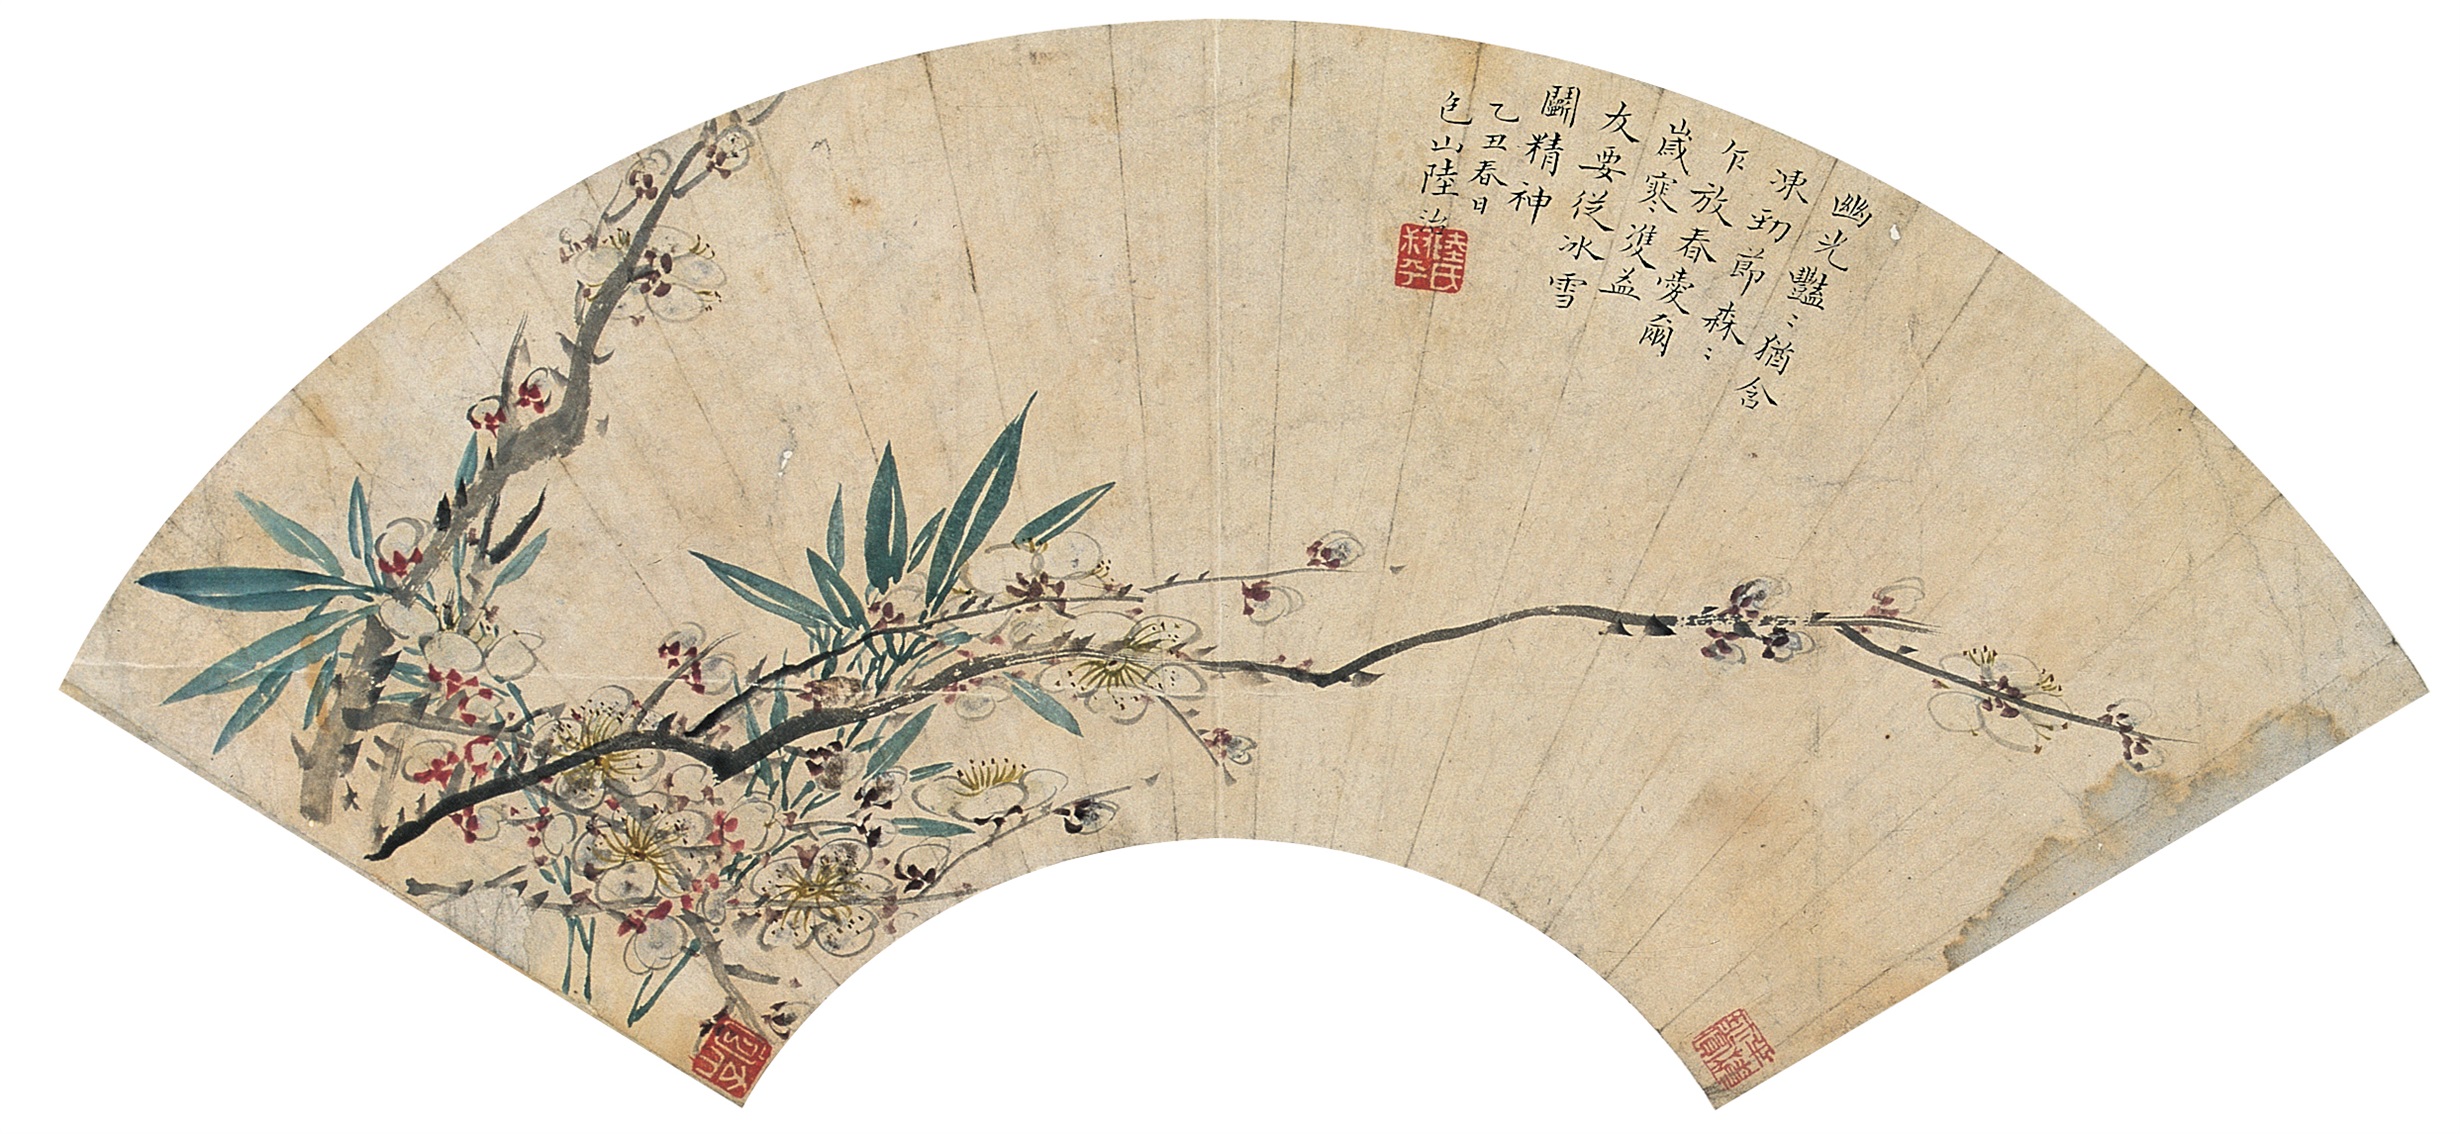 幽光豔〻猶含
凍劲節森〻
乍放春愛爾
歲寒雙益
友要從冰雪
鬬精神
乙丑春日
包山陸治
陸氏叔平